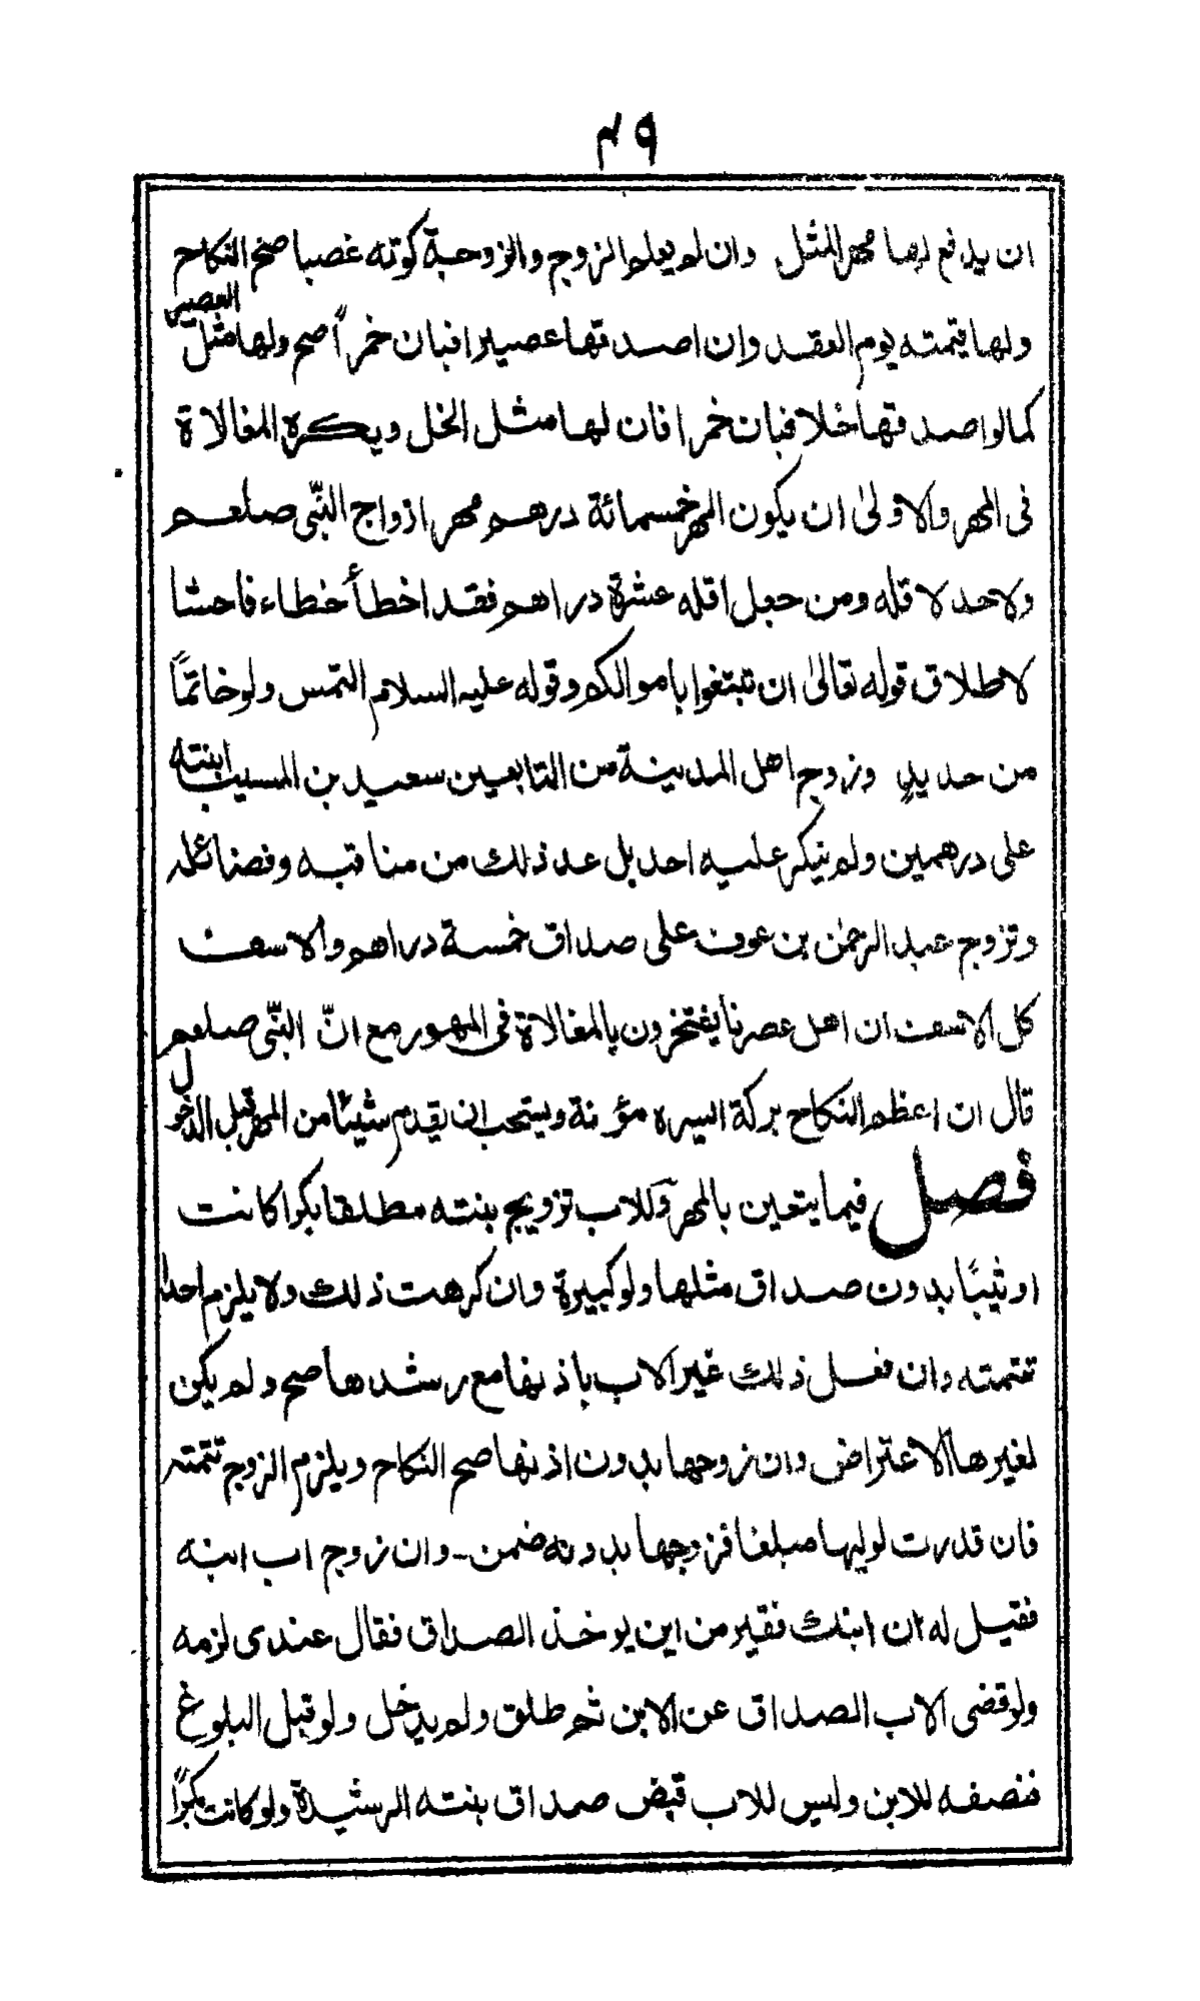 ٣٩
ان يدفع لها مهر المثل وان لم يعلم الزوج والزوجة كونه غصبا صح النكاح
ولها قيمته يوم العقد وان اصدقها عصيرا فبان خمراً صح ولها مثل العصير
كما لو اصدقها خلا فبان خمرا فان لها مثل الخل ويكره المغالاة
فى المهر والاولىٰ ان يكون المهر خمسمائة درهم مهر ازواج النبّى صلعم
ولا حد لاقله ومن جعل اقله عشرة دراهم فقد اخطأ خطاء فاحشا
لاطلاق قوله تعالىٰ ان تبتغوا باموالكم وقوله عليه السلام التمس ولو خاتمًا
من حديدٍ وزوج اهل المدينة من التابعين سعيد بن المسيب ابنته
على درهمين ولم ينكر عليه احد بل عد ذلك من مناقبه وفضائله
وتزوج عبد الرحمٰن بن عوف على صداق خمسة دراهم والاسف
كل الاسف ان اهل عصرنا يفتخرون بالمغالاة فى المهور مع انّ النبّى صلعم
قال ان اعظم النكاح بركة ايسره مؤنة ويستحب ان يقدم شيئًا من المهر قبل الدخول
فصل فيما يتعين بالمهر وللاب تزويج بنته مطلقا بكرا كانت
او ثيبًا بدون صداق مثلها ولو كبيرة وان كرهت ذلك ولا يلزم احدا
تتمته وان فعل ذلك غير الاب باذنها مع رشدها صح ولم يكن
لغيرها الاعتراض وان زوجها بدون اذنها صح النكاح ويلزم الزوج تتمته
فان قدرت لوليها مبلغا فزوجها بدونه ضمن - وان زوج اب ابنه
فقيل له ان ابنك فقير من اين يوخذ الصداق فقال عندى لزمه
ولو قضى الاب الصداق عن الابن ثم طلق ولم يدخل ولو قبل البلوغ
فنصفه للابن وليس للاب قبض صداق بنته الرشيدة ولو كانت بكرًا